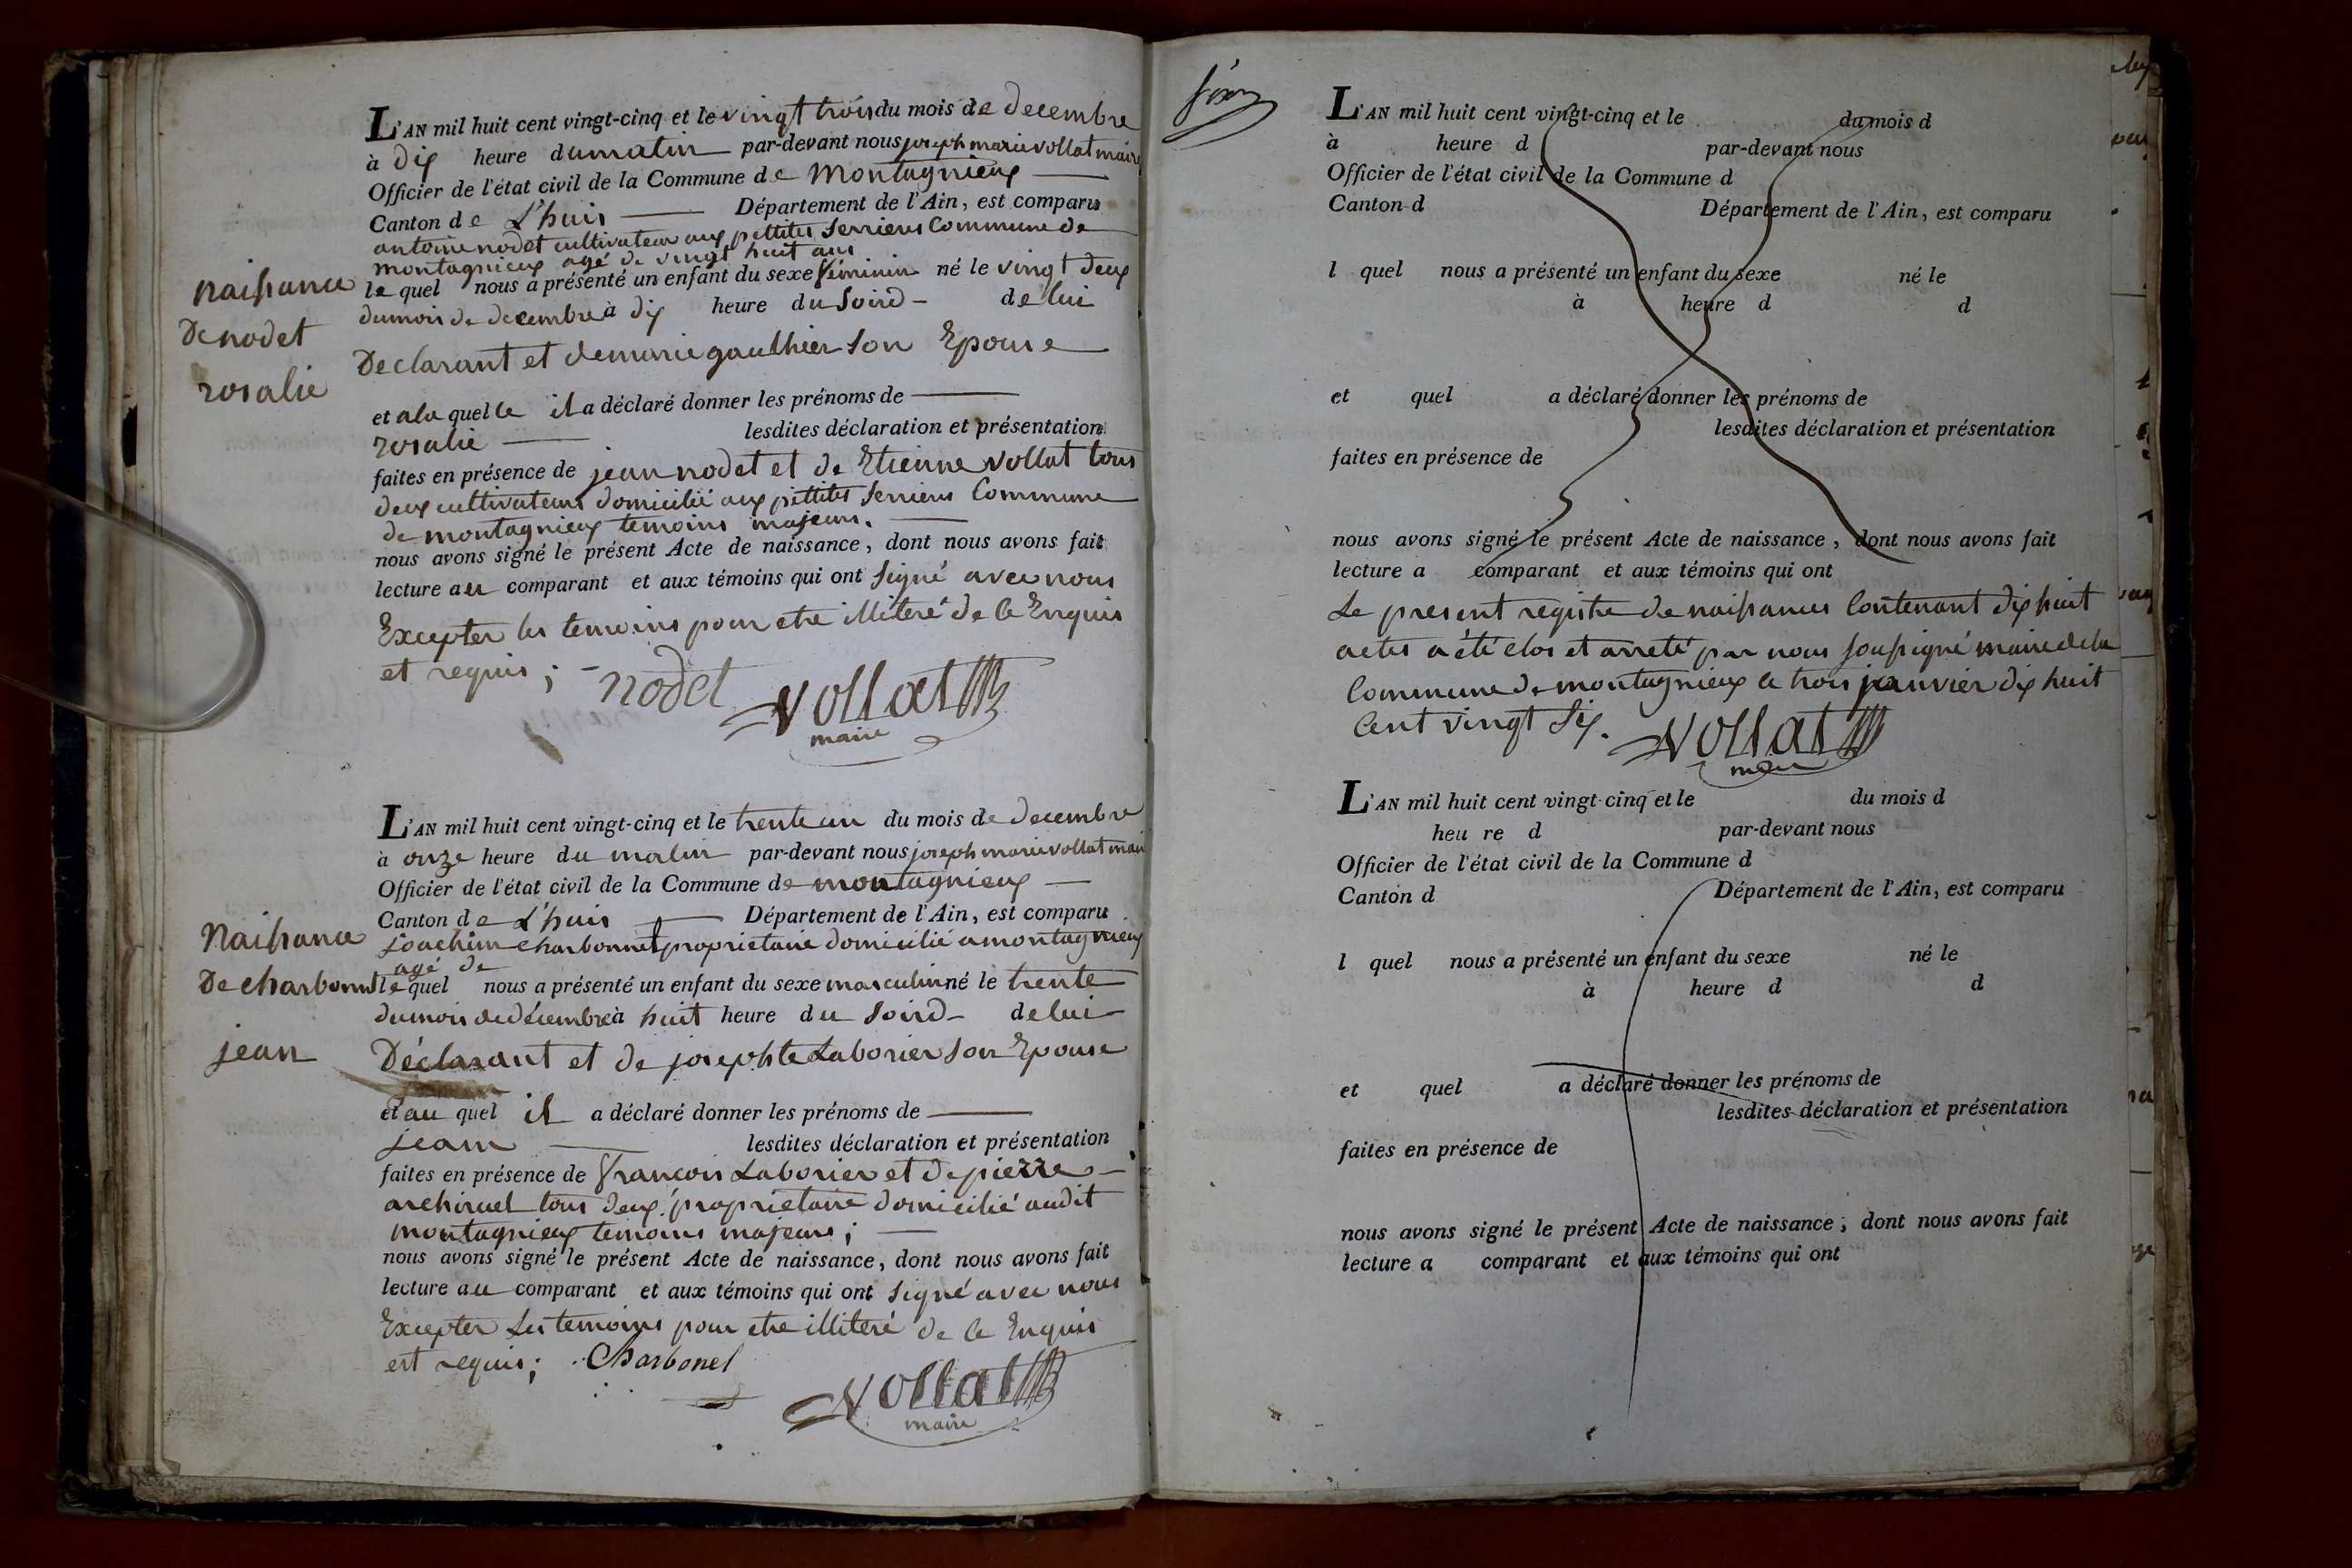 L'AN mil huit cent vingt-cinq et le vingt trois du mois de decembre
à dix heure du matin par-devant nous joseph marie vollat maire
Officier de l'état civil de la Commune de Montagnieux
Canton de L'huis Département de l'Ain, est comparu
antoine nodet cultivateur aux pettites Serrieres Commune de
montagnieux agé de vingt huit ans
le quel nous a présenté un enfant du sexe féminin né le vingt deux
du mois de decembre à dix heure du Soird de lui
Declarant et de marie gaulthier Son Epouse
et a la quelle il a déclaré donner les prénoms de
rosalie lesdites déclaration et présentation
faites en présence de jean nodet et de Etienne vollat tous
deux cultivateurs domicilié aux pittites Serrieres Commune
de montagnieux temoins majeurs.
nous avons signé le présent Acte de naissance, dont nous avons fait
lecture au comparant et aux témoins qui ont Signé avec nous
Excepter les temoins pour etre illiteré de ce Enquis
et requis; nodet Vollat
maire
naissance
De nodet
rosalie
L'AN mil huit cent vingt-cinq et le trente un du mois de decembre
à onze heure du matin par-devant nous joseph marie vollat mair
Officier de l'état civil de la Commune de montagnieux
Canton de L'huis Département de l'Ain, est comparu
joachim charbonnet proprietaire domicilié a montagnieux
agé de
le quel nous a présenté un enfant du sexe masculin né le trente
du mois de décembre à huit heure du Soird de lui
Déclarant et de josephte Laborier Son Epouse
et au quel il a déclaré donner les prénoms de
jean lesdites déclaration et présentation
faites en présence de françois Laborier et de pierre
tous deux proprietaire domicilié audit
montagnieux temoins majeurs;
nous avons signé le présent Acte de naissance, dont nous avons fait
lecture au comparant et aux témoins qui ont Signé avec nous
Excepter Les temoins pour etre illiteré de ce Enquis
est requis; Charbonel
Vollat
maire
Naissance
De charbonnet
jean
L'AN mil huit cent vingt-cinq et le du mois d
à heure d par-devant nous
Officier de l'état civil de la Commune d
Canton d Département de l'Ain, est comparu
l quel nous a présenté un enfant du sexe né le
à heure d d
et quel a déclaré donner les prénoms de
lesdites déclaration et présentation
faites en présence de
nous avons signé le présent Acte de naissance, dont nous avons fait
lecture a comparant et aux témoins qui ont
Le present registre de naissances Contenant dix huit
actes a été clos et arreté par nous soussigné maire de la
Commune de montagnieux le trois janvier dix huit
Cent vingt Six. Vollat
maire
L'AN mil huit cent vingt-cinq et le du mois d
heu re d par-devant nous
Officier de l'état civil de la Commune d
Canton d Département de l'Ain, est comparu
l quel nous a présenté un enfant du sexe né le
à heure d d
et quel a déclaré donner les prénoms de
lesdites déclaration et présentation
faites en présence de
nous avons signé le présent Acte de naissance, dont nous avons fait
lecture a comparant et aux témoins qui ont